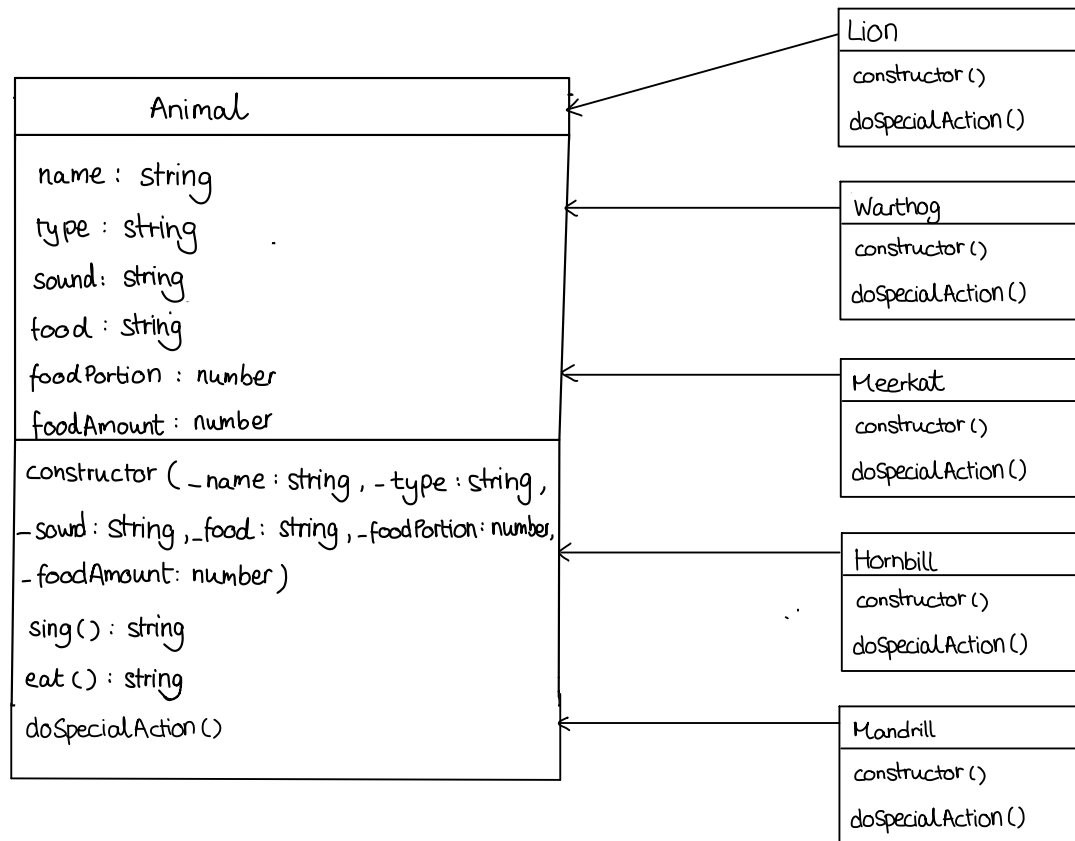 Animal
name : string
type : string
sound: string
food : string
foodPortion : number
foodAmount : number
constructor (_name : string, _type : string,
_sound: string, _food: string, _foodPortion: number,
_foodAmount: number)
sing() : string
eat() : string
doSpecialAction()
Lion
constructor()
doSpecialAction()
Warthog
constructor()
doSpecialAction()
Meerkat
constructor()
doSpecialAction()
Hornbill
constructor()
doSpecialAction()
Mandrill
constructor()
doSpecialAction()